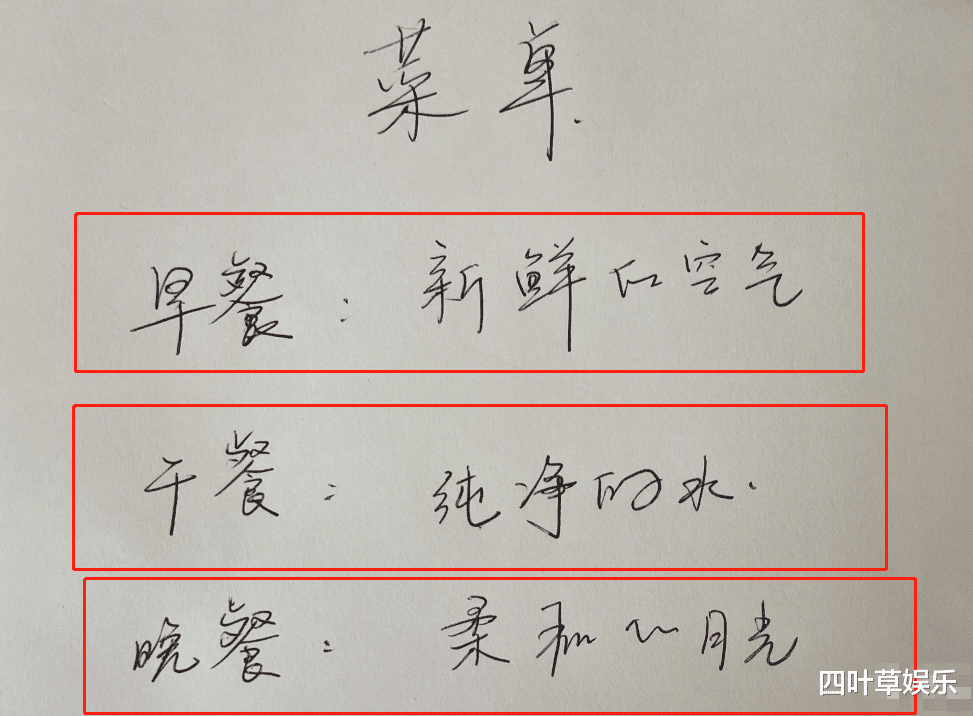 菜单.
早餐：新鲜的空气
午餐：纯净的水.
晚餐：柔和的月光
四叶草娱乐